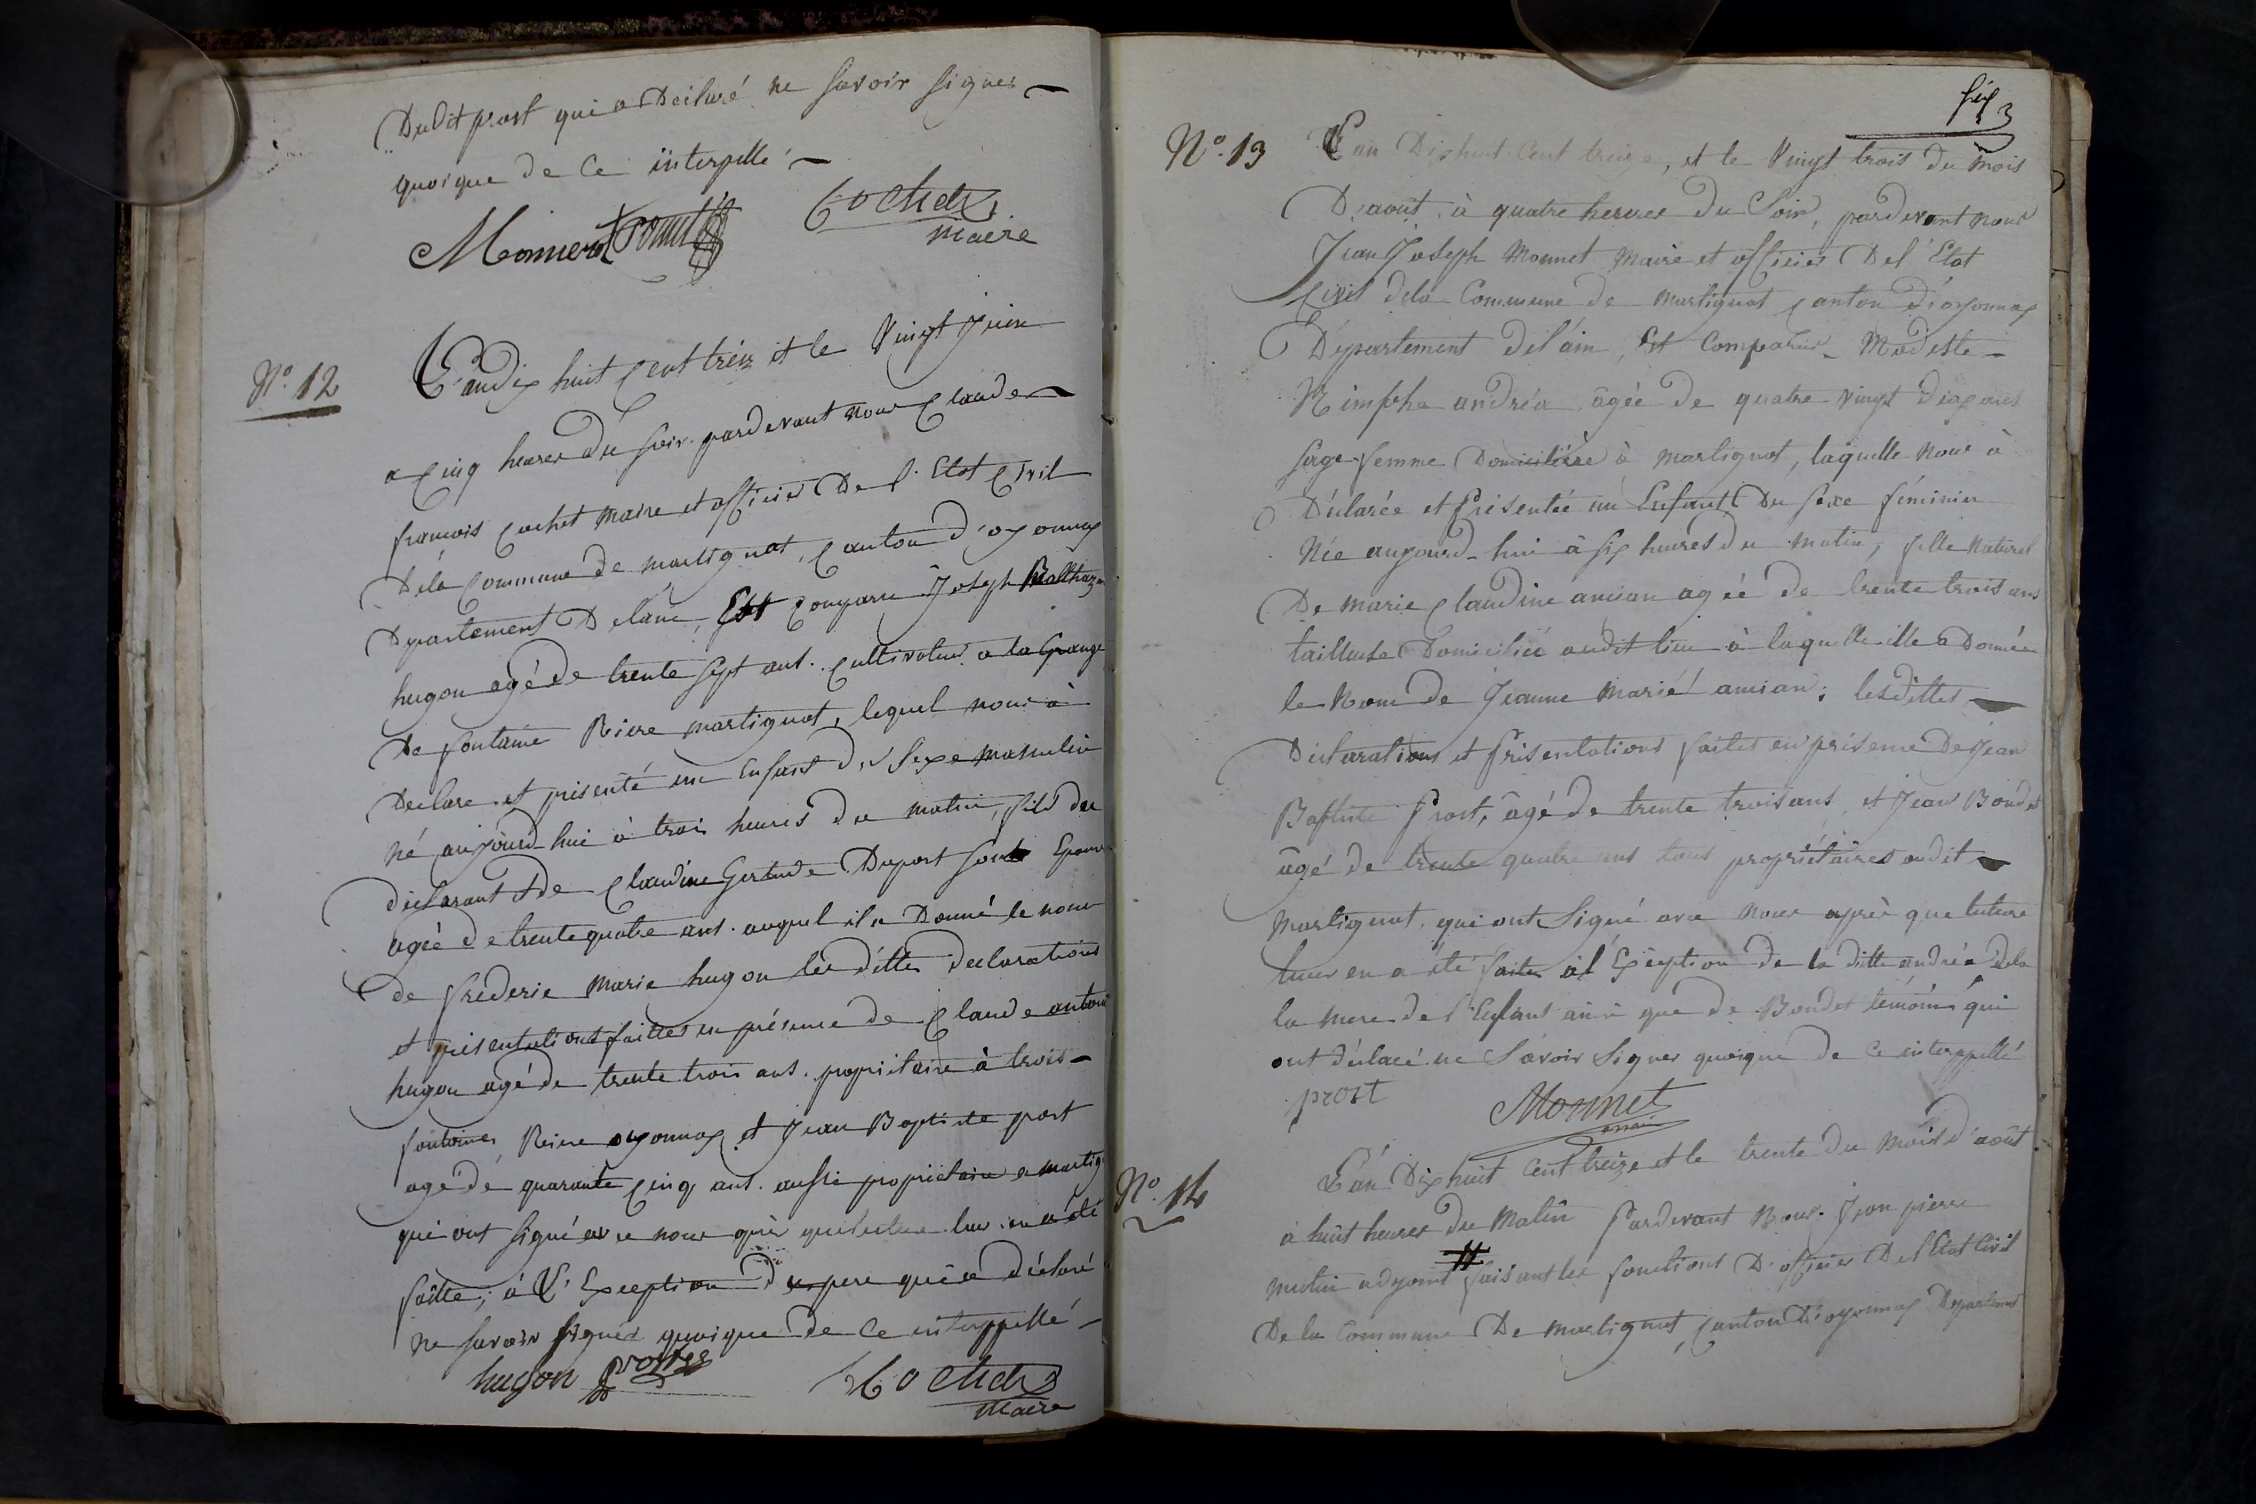 Dudit prost qui a Déclaré ne savoir signer
quoique de ce interpellé
Cochet
maire
N.º 12
L'an dix huit cent trèz et le Vingt juin
a cinq heures du soir pardevant nous claude
francois cochet maire et officier De l'Etat civil
Dela commune de martignat, canton d'oyonnax
Dpartement Delain, Est comparu Joseph Balthazar
hugon agé de trente sept ans. cultivateur a la Grange
De fontaine Riere martignat, lequel nous à
Declare et présenté un Enfant du sexe masculin
né aujourd hui à trois heures du matin, fils du
déclarant & de claudine Gertude Duport son Epouse
agée de trente quatre ans. auquel il a Donné le nom
de fréderic marie hugon les dittes declarations
et présentations faittes en présence de claude antoine
hugon agé de trente trois ans. propriétaire à trois
fontaines Riere oyonnax et Jean Baptiste prost
age de quarante cinq ans. aussi propriétaire a martig
qui ont signé avec nous après que lecture leur en a été
faitte, à L'Exception du pere qui a déclaré
ne savoir signer quoique de ce interppellé
hugon prost
Cochet
maire
six 3
N.º 13 L'an Dixhuit Cent treize, et le Vingt trois du mois
D'aout, à quatre heures Du Soir, pardevant nous
Jean Joseph Monnet Maire et officier Del'Etat
Civil dela Commune de martignat canton d'oyonnax
Département del'ain, Est Comparue Modeste
Nimphe andréa âgée de quatre vingt dix ans
sage femme Domiciliée à martignat, laquelle nous à
Déclarée et Présentée un Enfant Du sexe féminin
Née aujourd-hui à six heures du matin, fille Naturel
De marie claudine amian agée de trente trois ans
tailleuse Domiciliée audit lieu à laquelle elle a Donnée
le Nom de Jeanne Marie amian; lesdittes
Déclarations et Présentations faites en présence De Jean
Baptiste Prost, âgé de trente trois ans, et Jean Bondet
âgé de trente quatre ans tous propriétaires audit
Martignat, qui ont Signé avec Nous après que lecture
leur en a été faite à l'Exception de la ditte andréa dela
la mere de l'Enfant ainsi que de Bondet témoins qui
ont déclaré ne Savoir Signer quoique de ce interppellé
prost
Monnet
maire
N.º 14 L'an Dixhuit Cent treize et le trente du mois d'août
à huit heures du Matin Pardevant Nous Jean pierre
mutin adjoint faisant les fonctions D'officier Del'Etat Civil
De la Commune De martignat, canton D'oyonnax Département